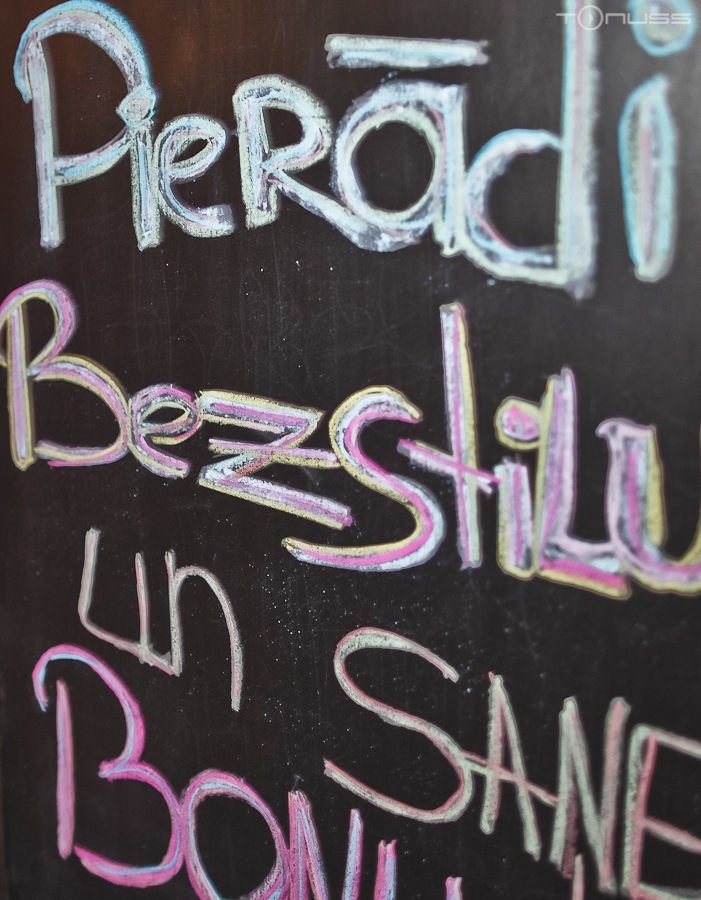 TONUSS
Pierādi
Bezstilu
un SANE
BONU